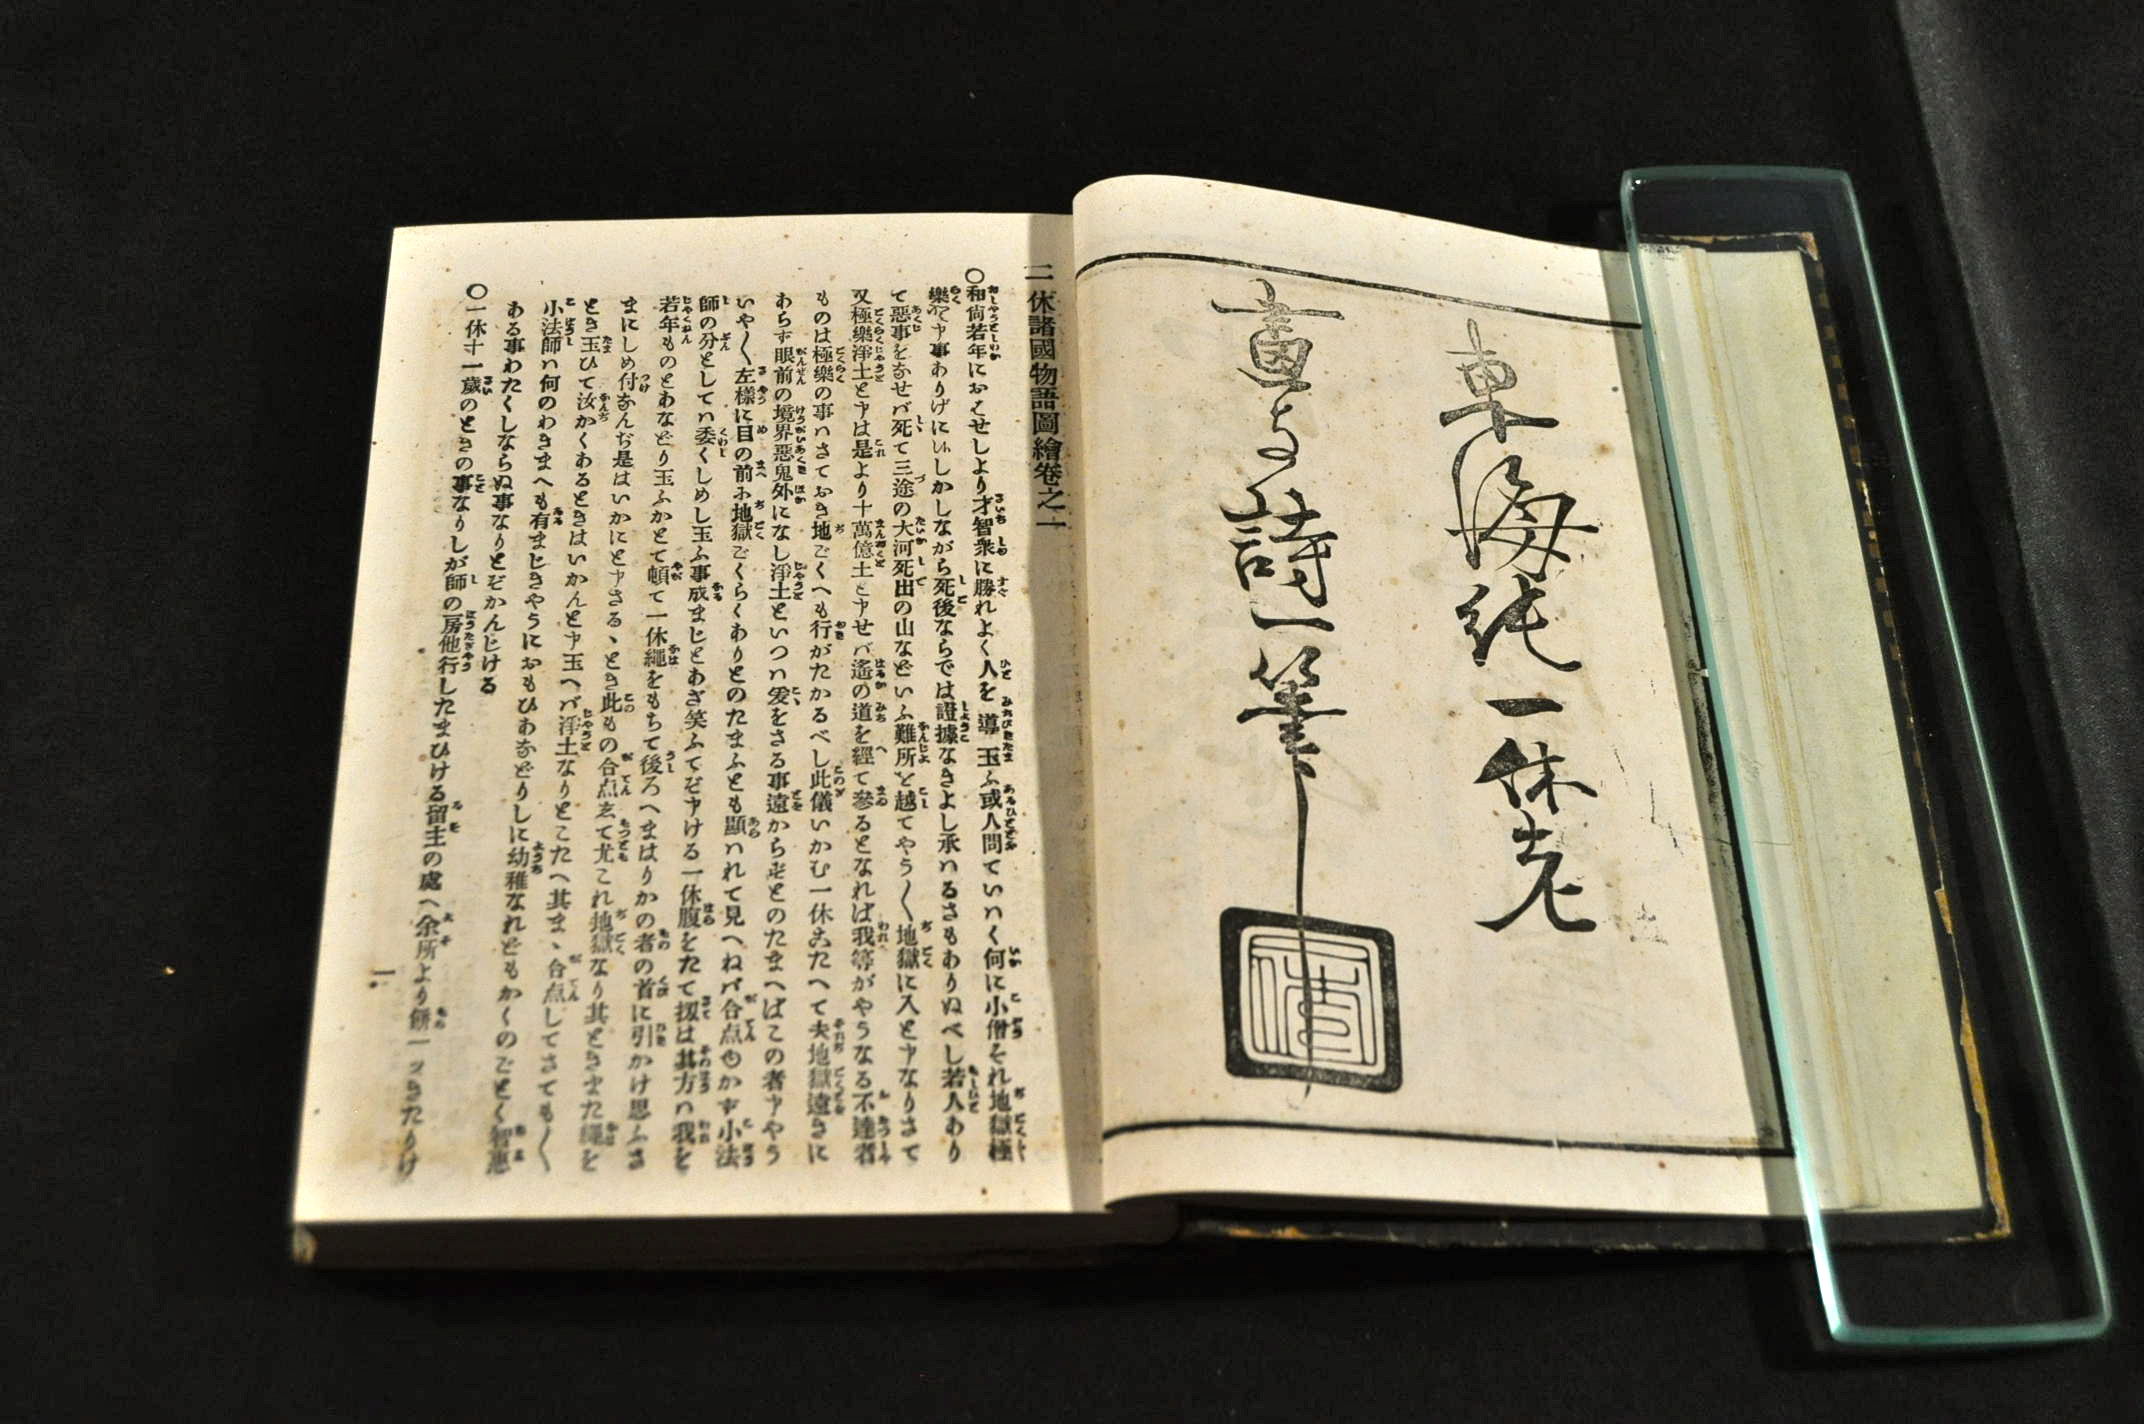 東海純一休老
畫與詩一筆
一休諸國物語圖繪卷之一
○和尙若年におはせしより才智衆に勝れよく人を導玉ふ或人問ていはく何に小僧それ地獄極
樂と申事ありげに候しかしながら死後ならでは證據なきよし承はるさもありぬべし若人あり
て惡事をなせバ死て三途の大河死出の山などいふ難所を越てやう〱地獄に入と申なりさて
又極樂淨土と申は是より十萬億土と申せバ遙の道を經て參るとなれば我等がやうなる不達者
ものは極樂の事ハさておき地ごくへも行がたかるべし此儀いかむ一休こたへて夫地獄遠きに
あらず眼前の境界惡鬼外になし淨土といつハ爰をさる事遠からずとのたまへばこの者申やう
いや〱左樣に目の前に地獄ごくらくありとのたまふとも顯ハれて見へねバ合点ゆかず小法
師の分としてハ委くしめし玉ふ事成まじとあざ笑ふてぞ申ける一休腹をたて扨は其方ハ我を
若年ものとあなどり玉ふかとて頓て一休繩をもちて後ろへまはりかの者の首に引かけ思ふさ
まにしめ付なんぢ是はいかにと申さるゝとき此もの合点して尤これ地獄なり其ときまた繩を
とき玉ひて汝かくあるときはいかんと申玉へバ淨土なりとこたへ其まゝ合点してさても〱
小法師ハ何のわきまへも有まじきやうにおもひあなどりしに幼稚なれどもかくのごとく智惠
ある事わたくしならぬ事なりとぞかんじける
○一休十一歲のときの事なりしが師の房他行したまひける留主の處へ余所より餠一ツきたりけ
一